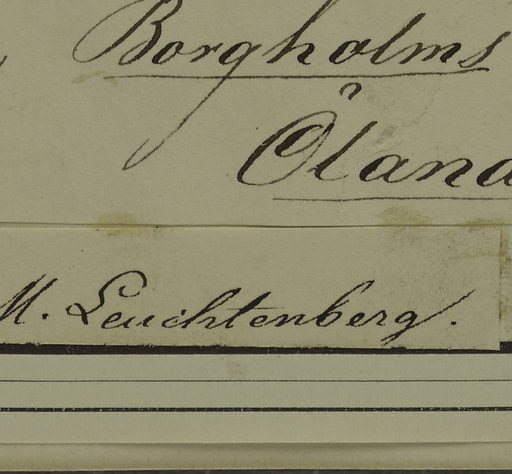 Borgholms
Öland
M. Leuchtenberg.